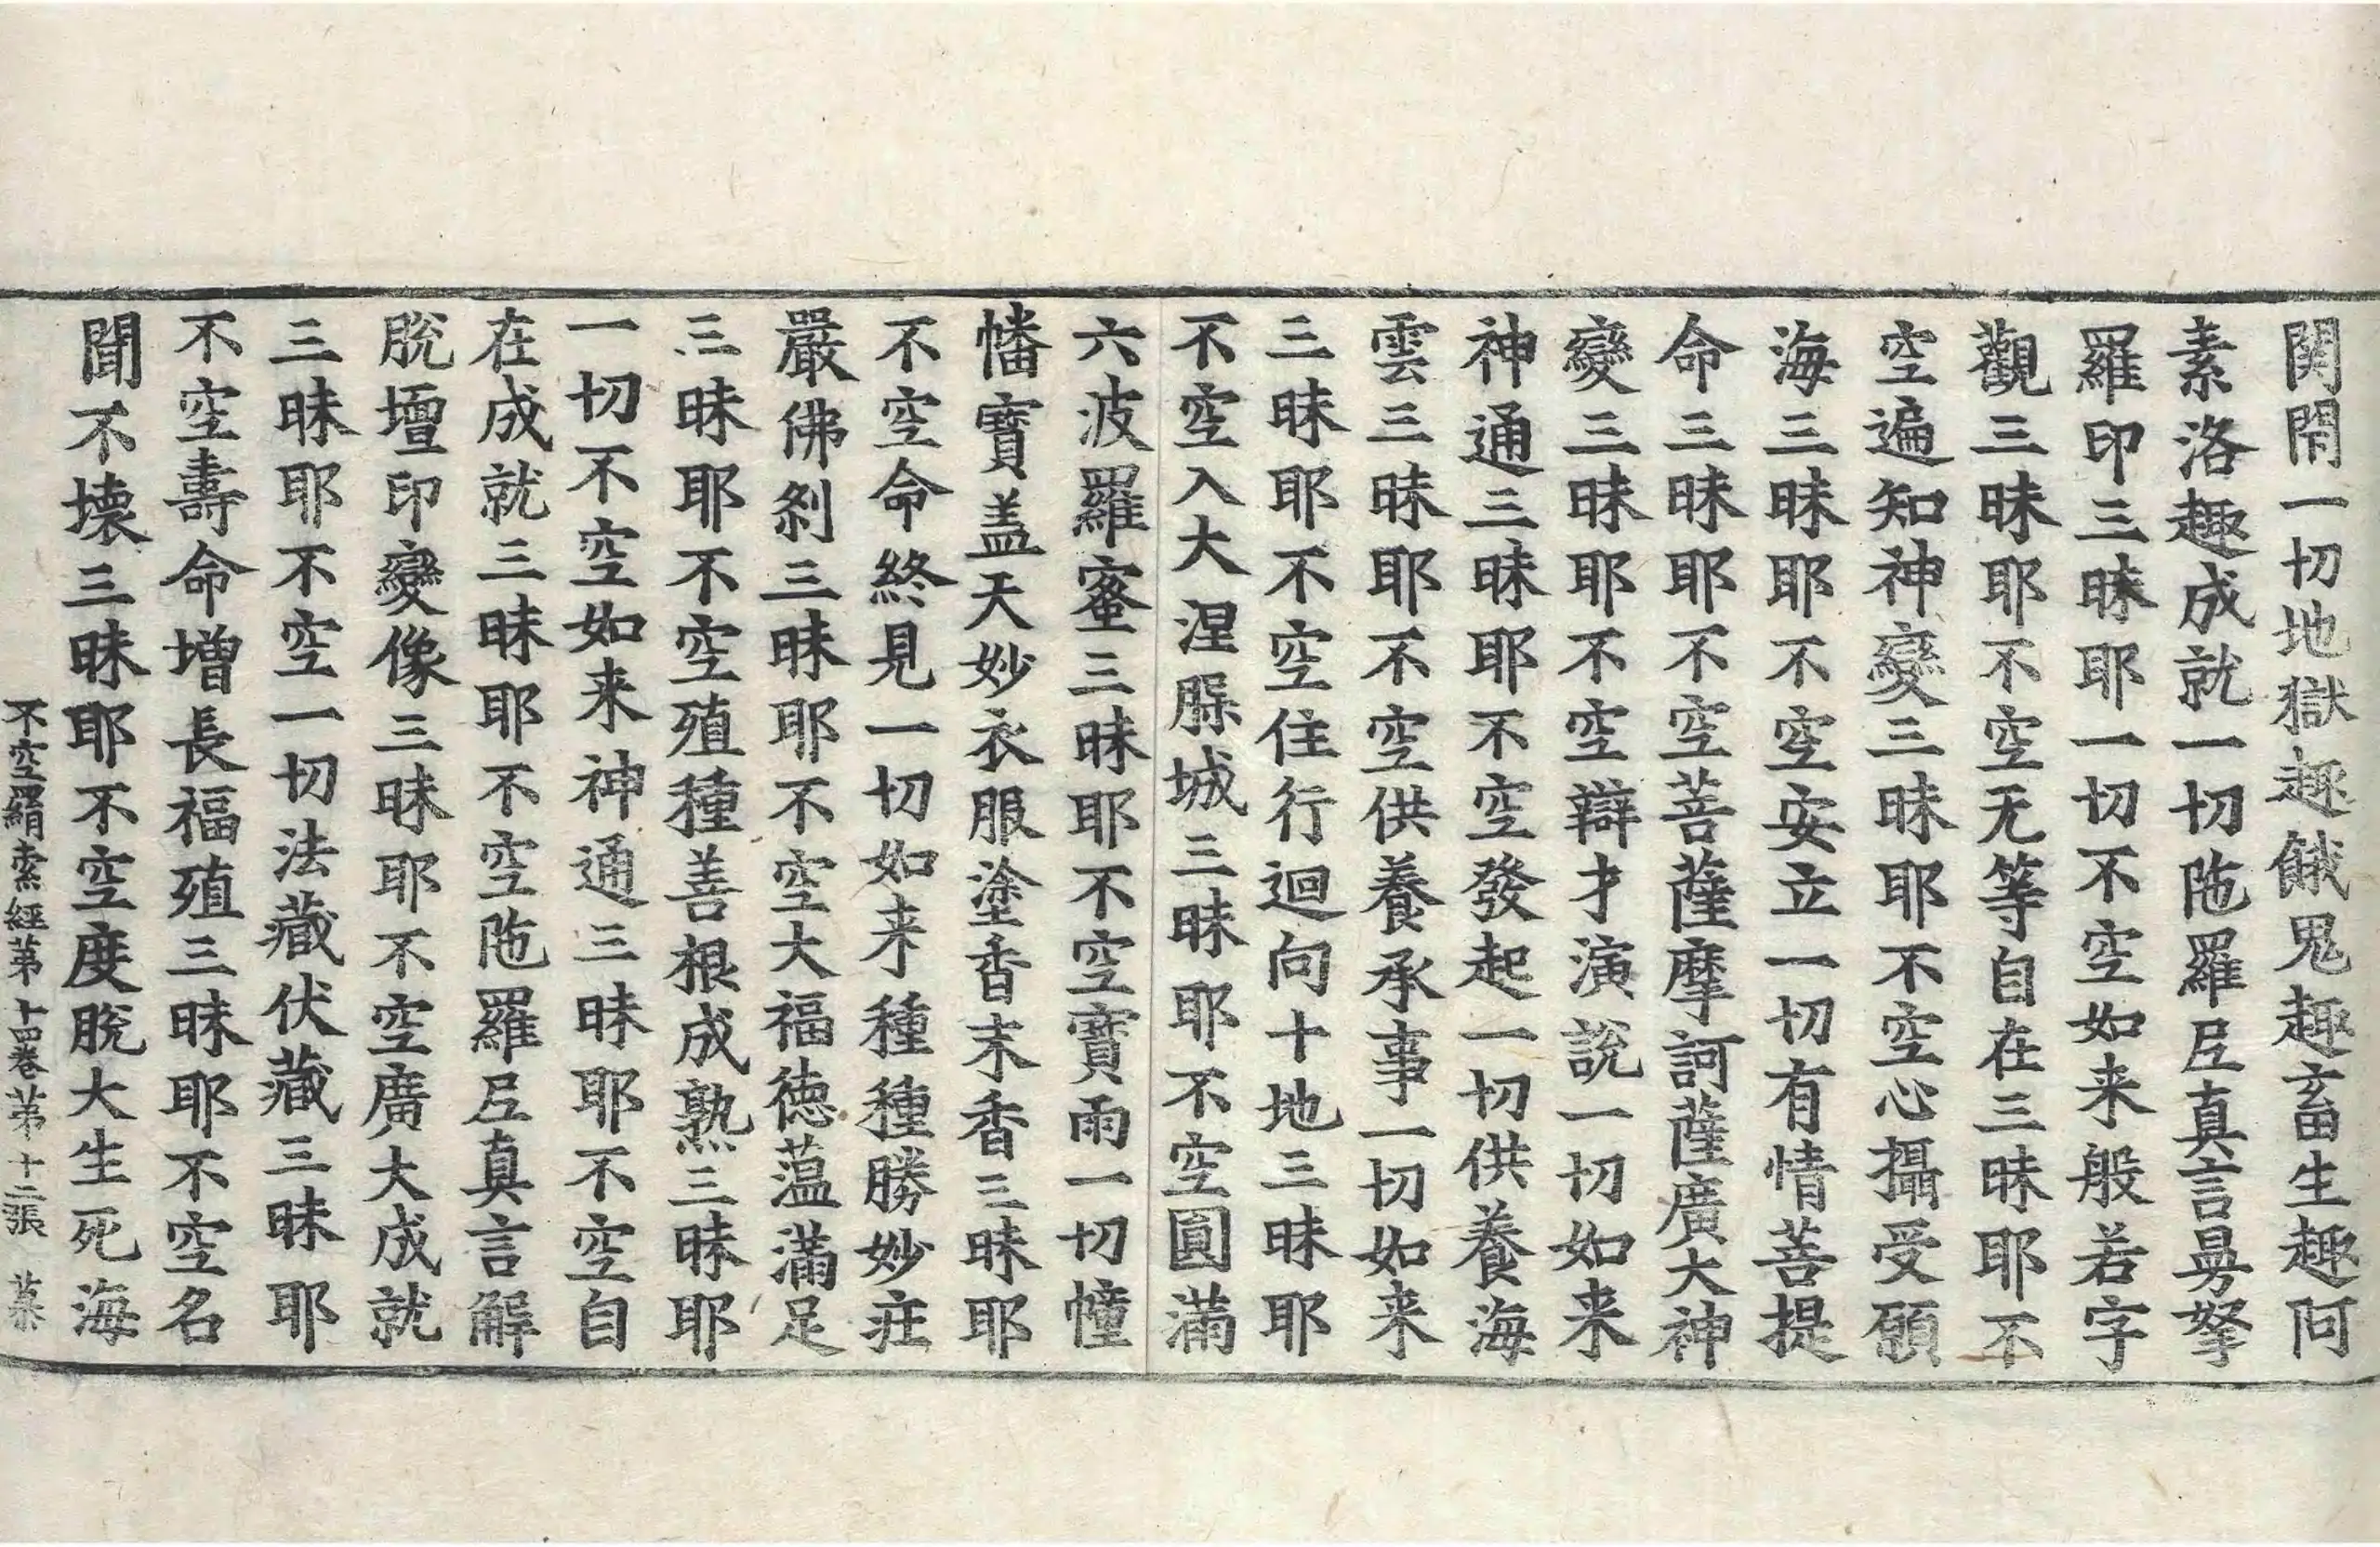 関閇一切地獄趣餓鬼趣畜生趣阿
素洛趣成就一切陁羅𡰱真言曼拏
羅印三昧耶一切不空如来般若字
觀三昧耶不空无等自在三昧耶不
空遍知神變三昧耶不空心攝受願
海三昧耶不空安立一切有情菩提
命三昧耶不空菩薩摩訶薩廣大神
變三昧耶不空辯才演說一切如来
神通三昧耶不空發起一切供養海
雲三昧耶不空供養承事一切如来
三昧耶不空住行迴向十地三昧耶
不空入大涅槃城三昧耶不空圓滿
六波羅蜜三昧耶不空寶雨一切幢
幡寶盖天妙衣服塗香末香三昧耶
不空命終見一切如来種種勝妙莊
嚴佛刹三昧耶不空大福德蘊滿足
三昧耶不空殖種善根成熟三昧耶
一切不空如来神通三昧耶不空自
在成就三昧耶不空陁羅𡰱真言解
脫壇印變像三昧耶不空廣大成就
三昧耶不空一切法藏伏藏三昧耶
不空壽命增長福殖三昧耶不空名
聞不壞三昧耶不空度脫大生死海
不空羂索經第十四卷 第十二張 慕